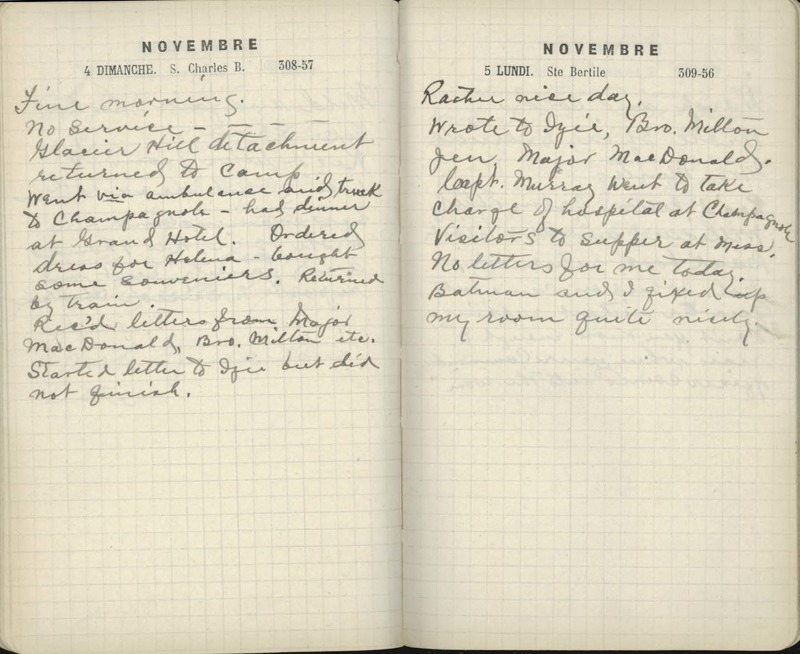 NOVEMBRE
4 DIMANCHE. S. Charles B. 308-57
Fine morning.
No service -
Glacier Hill detachment
returned to camp
Went via ambulance and truck
to Champagnole - had dinner
at Grand Hotel. Ordered
dress for Helena - bought
some souveniers. Returned
by train.
Rec'd letters from Major
MacDonald, Bro. Milton etc.
Started letter to Izie but did
not finish.
NOVEMBRE
5 LUNDI. Ste Bertile 309-56
Rather nice day.
Wrote to Izie, Bro. Milton
Jen, Major MacDonald.
Capt. Murray went to take
charge of hospital at Champagnole
Visitors to supper at mess.
No letters for me today.
Batman and I fixed up
my room quite nicely